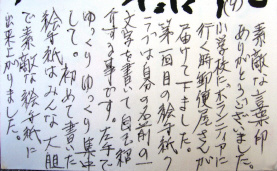 素敵な言葉印
ありがとうございました。
小学校にボランティアに
行く時郵便屋さんが
届けて下さいました。
第一回目の絵手紙の
こつは自分の名前の一
文字を書いて自己紹
介する事です。左手で
ゆっくりゆっくり集中
して。初めて書いた
絵手紙はみんな大胆
で素敵な絵手紙に
出来上がりました。